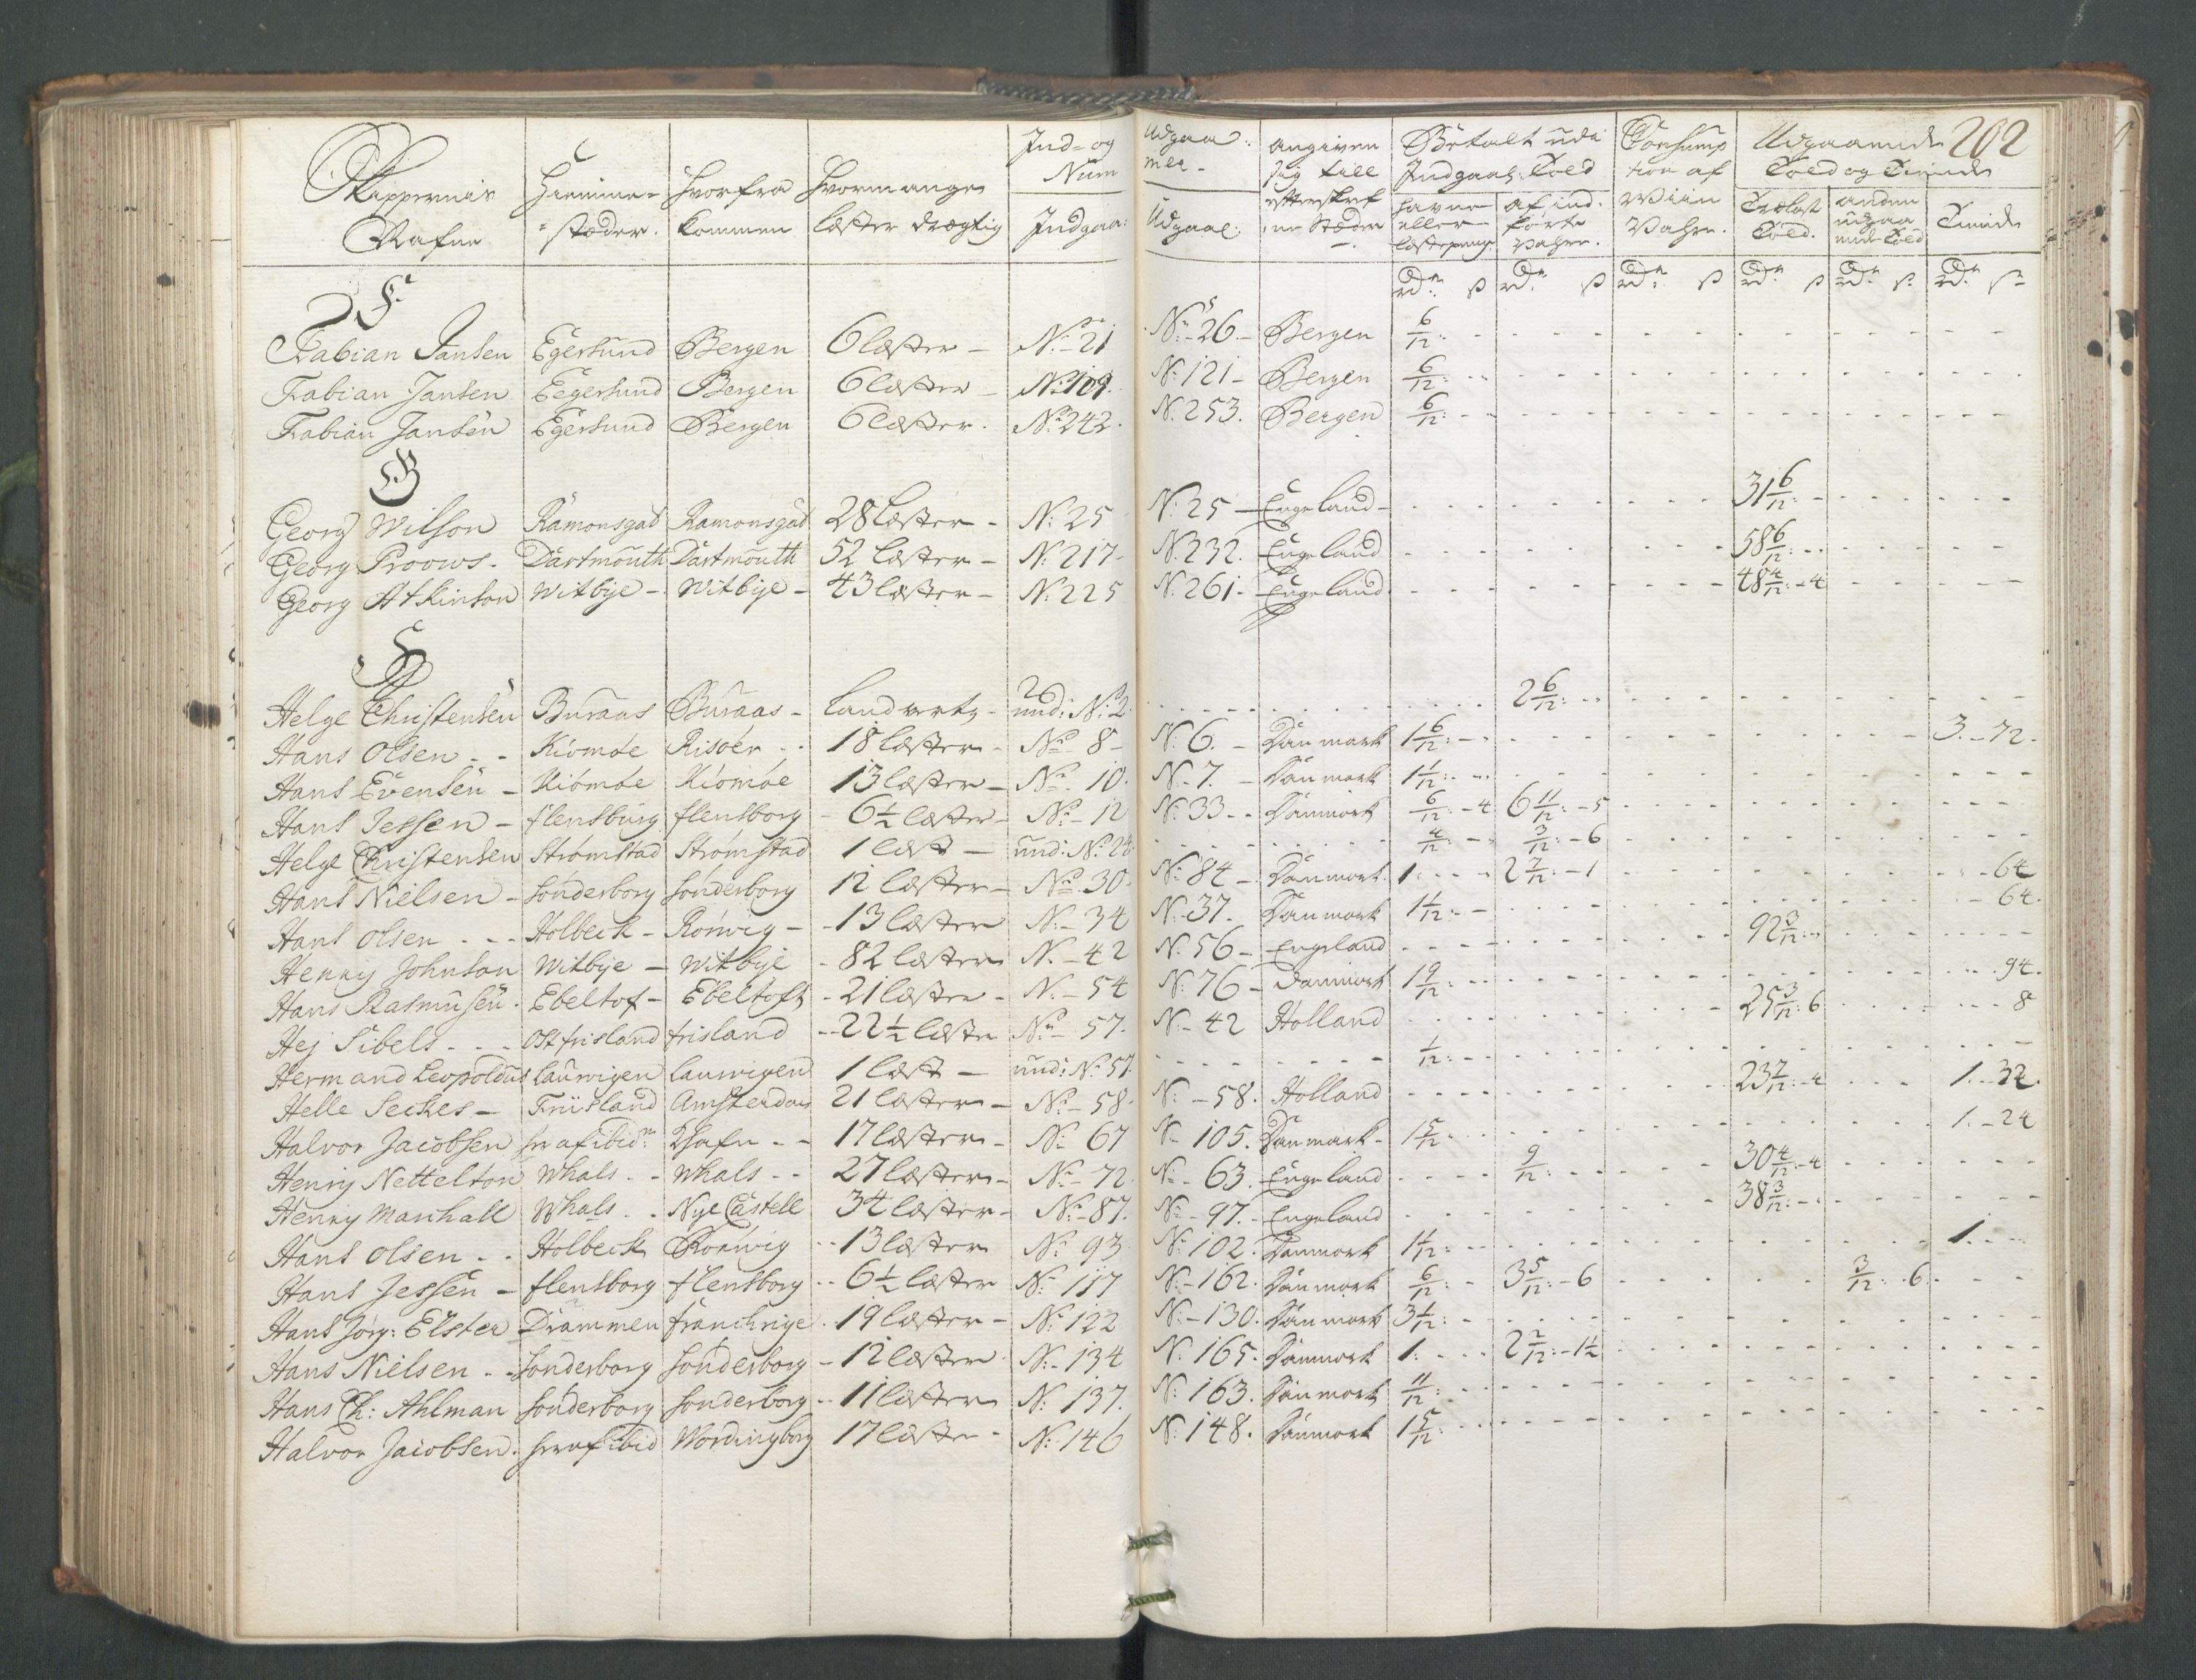 202
Skippernis Nafne | Hiemme-stæder. | Hvorfra kommen | Hvormange læster drægtig | Ind- og Udgaa: Num mer - Indgaa: | Udgaae: | angiven sig till efterskref ne Stæder | Betalt udi Indgaae: Told havne eller læstepenge | af ind: førte Vahre. | Consump tion af Wiin Vahre. | Udgaaende Told og Tiende Trælast Told. | anden udgaa ende Told | Tiende
rdr ß | rdr ß | rdr ß | rdr ß | rdr ß | rdr ß
F
Fabian Jansen | Egersund | Bergen | 6 læster - | No 21 | No 26 - | Bergen | 6/12:
Fabian Jansen | Eegersund | Bergen | 6 læster - | No 109. | No 121 - | Bergen | 6/12:
Fabian Jansen | Egersund | Bergen | 6 læster. | No 242. | No 253. | Bergen | 6/12:
G
Georg Wilson | Ramonsgad | Ramonsgad | 28 læster - | No 25 | No 25 - | Engeland - | 31 6/12: -
Georg Proows. | Dartmouth | Dartmouth | 52 læster - | No 217 - | No 232. | Engeland | 58 6/12: -
Georg Atkinson | Witbye - | Witbye - | 43 læster - | No 225 | No 261 - | Engeland | 48 4/12: - 4
H
Helge Christensen | Buraas | Buraas - | Landverts - | und: No 2. | 2 6/12: -
Hans Olsen - - | Kiömöe | Risöer - - | 18 læster - | No 8 - | No 6. - | Danmark | 1 6/12: - | 3. - 72.
Hans Evensen - | Kiömöe | Kiömöe | 13 læster - | No 10. | No 7. - | Danmark | 1 1/12: -
Hans Jessen - | flensburg | flensborg | - 6 1/2 læster - | No - 12 | No 33 - - | Danmark | 6/12: - 4 | 6 11/12: - 5
Helge Christensen | Strömstad | Strömstad | 1 læst - | und: No 24. | 4/12: - | 3/12: - 6
Hans Nielsen - | Sönderborg | Sönderborg | 12 læster - | No 30. | No 84 - | Danmark. | 1: - - | 2 7/12: - 1 | 64
Hans Olsen - - - | Holbeck - | Rörwig - | - 13 læster | No - 34 | No 37. | Danmark | 1 1/12: - | 64.
Henry Johnson | Witbye - | Witbye | - 82 læster | No - 42 | No 56 - | Engeland | 92 3/12: -
Hans Rasmusen. | Ebeltof - | Ebeltoft | - 21 læster - | No - 54 | No 76 - | Danmark | 1 9/12: | 94.
Hej Sibels - - - | Ostfrisland | frisland | - - 22 1/2 læster | No - 57. | No - 42 | Holland | 25 3/12: 6 | 8
Hermand Leopoldus | Laurwigen | Laurwigen | 1 læst - | und: No 57. | 1/12: -
Helle Seckes - | Friisland | Amsterdam | 21 læster - | No - 58. | No - 58. | Holland | 23 7/12: - 4 | 1. - 32.
Halvor Jacobsen | her af ibidm | Khafn - - | 17 læster - | No 67 | No 105. | Danmark - | 1 5/12: | 1. - 24
Henry Nettelton | Whals - - | Whals - - | 27 læster - | No - 72 | No - 63. | Engeland | 9/12: - | 30 4/12: - 4
Henry Marshall | Whals - - | Nye Castell | 34 læster - | No - 87. | No - 97. - | Engeland | 38 3/12: -
Hans Olsen - - | Holbeck | Rörwig | - - 13 læster | No 93 | No 102. | Danmark | 1 1/12: - | 1. -
Hans Jessen - | flensborg | flensborg | - - 6 1/2 læster | No 117 | No - 162. | Danmark | 6/12: - | 3 5/12: - 6 | 3/12: - 6.
Hans Jörg: Elster | Drammen | franckrige | - 19 læster - | No 122 | No - 130. | Danmark | 3 1/12: -
Hans Nielsen - - | Sonderborg | Sönderborg | - 12 læster | No - 134 | No 165. | Danmark | 1. - - | 2 2/12: - 1 1/2
Hans Ch: Ahlman | Sönderborg | Sonderborg | - - 11 læster | No 137. | No 163. | Danmark | 11/12:
Halvor Jacobsen. | her af ibid | Wordingborg | 17 læster - | No 146 | No 148. | Danmark | 1 5/12: